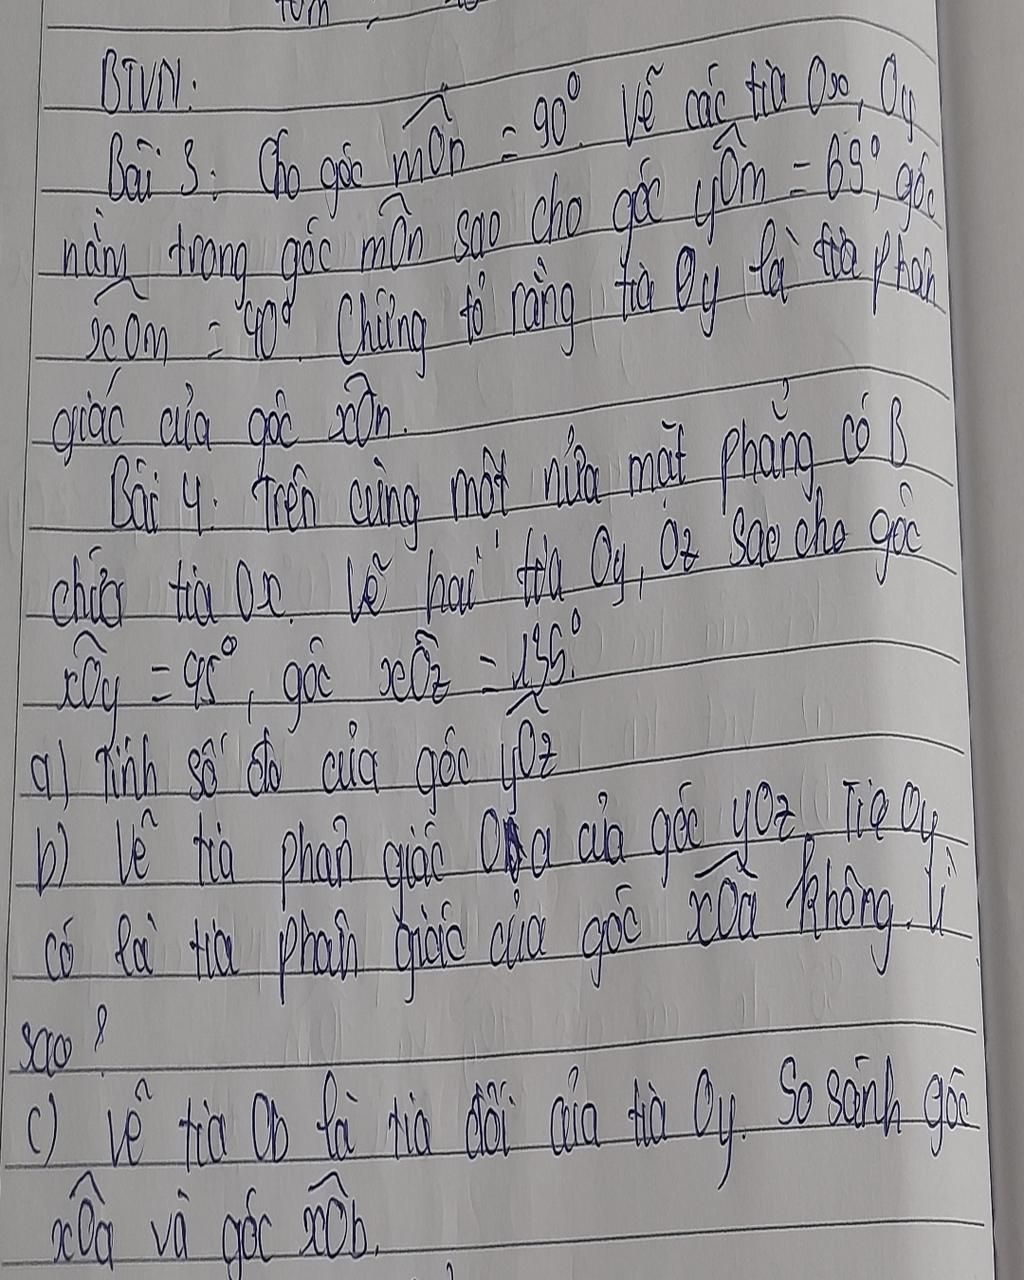 BTVN:
Bài 3: Cho góc mOn = 90°. Vẽ các tia Ox, Oy
nằm trong góc mOn sao cho góc yOm = 65°, góc
xOm = 40°. Chứng tỏ rằng tia Oy là tia phân
giác của góc xOn.
Bài 4: Trên cùng một nửa mặt phẳng có B
chứa tia Ox. Vẽ hai tia Oy, Oz sao cho góc
xOy = 45°, góc xOz = 135°.
a) Tính số đo của góc yOz
b) Vẽ tia phân giác Oa của góc yOz. Tia Oy
có là tia phân giác của góc xOa không. Vì
sao?
c) Vẽ tia Ob là tia đối của tia Oy. So sánh góc
xOa và góc xOb.